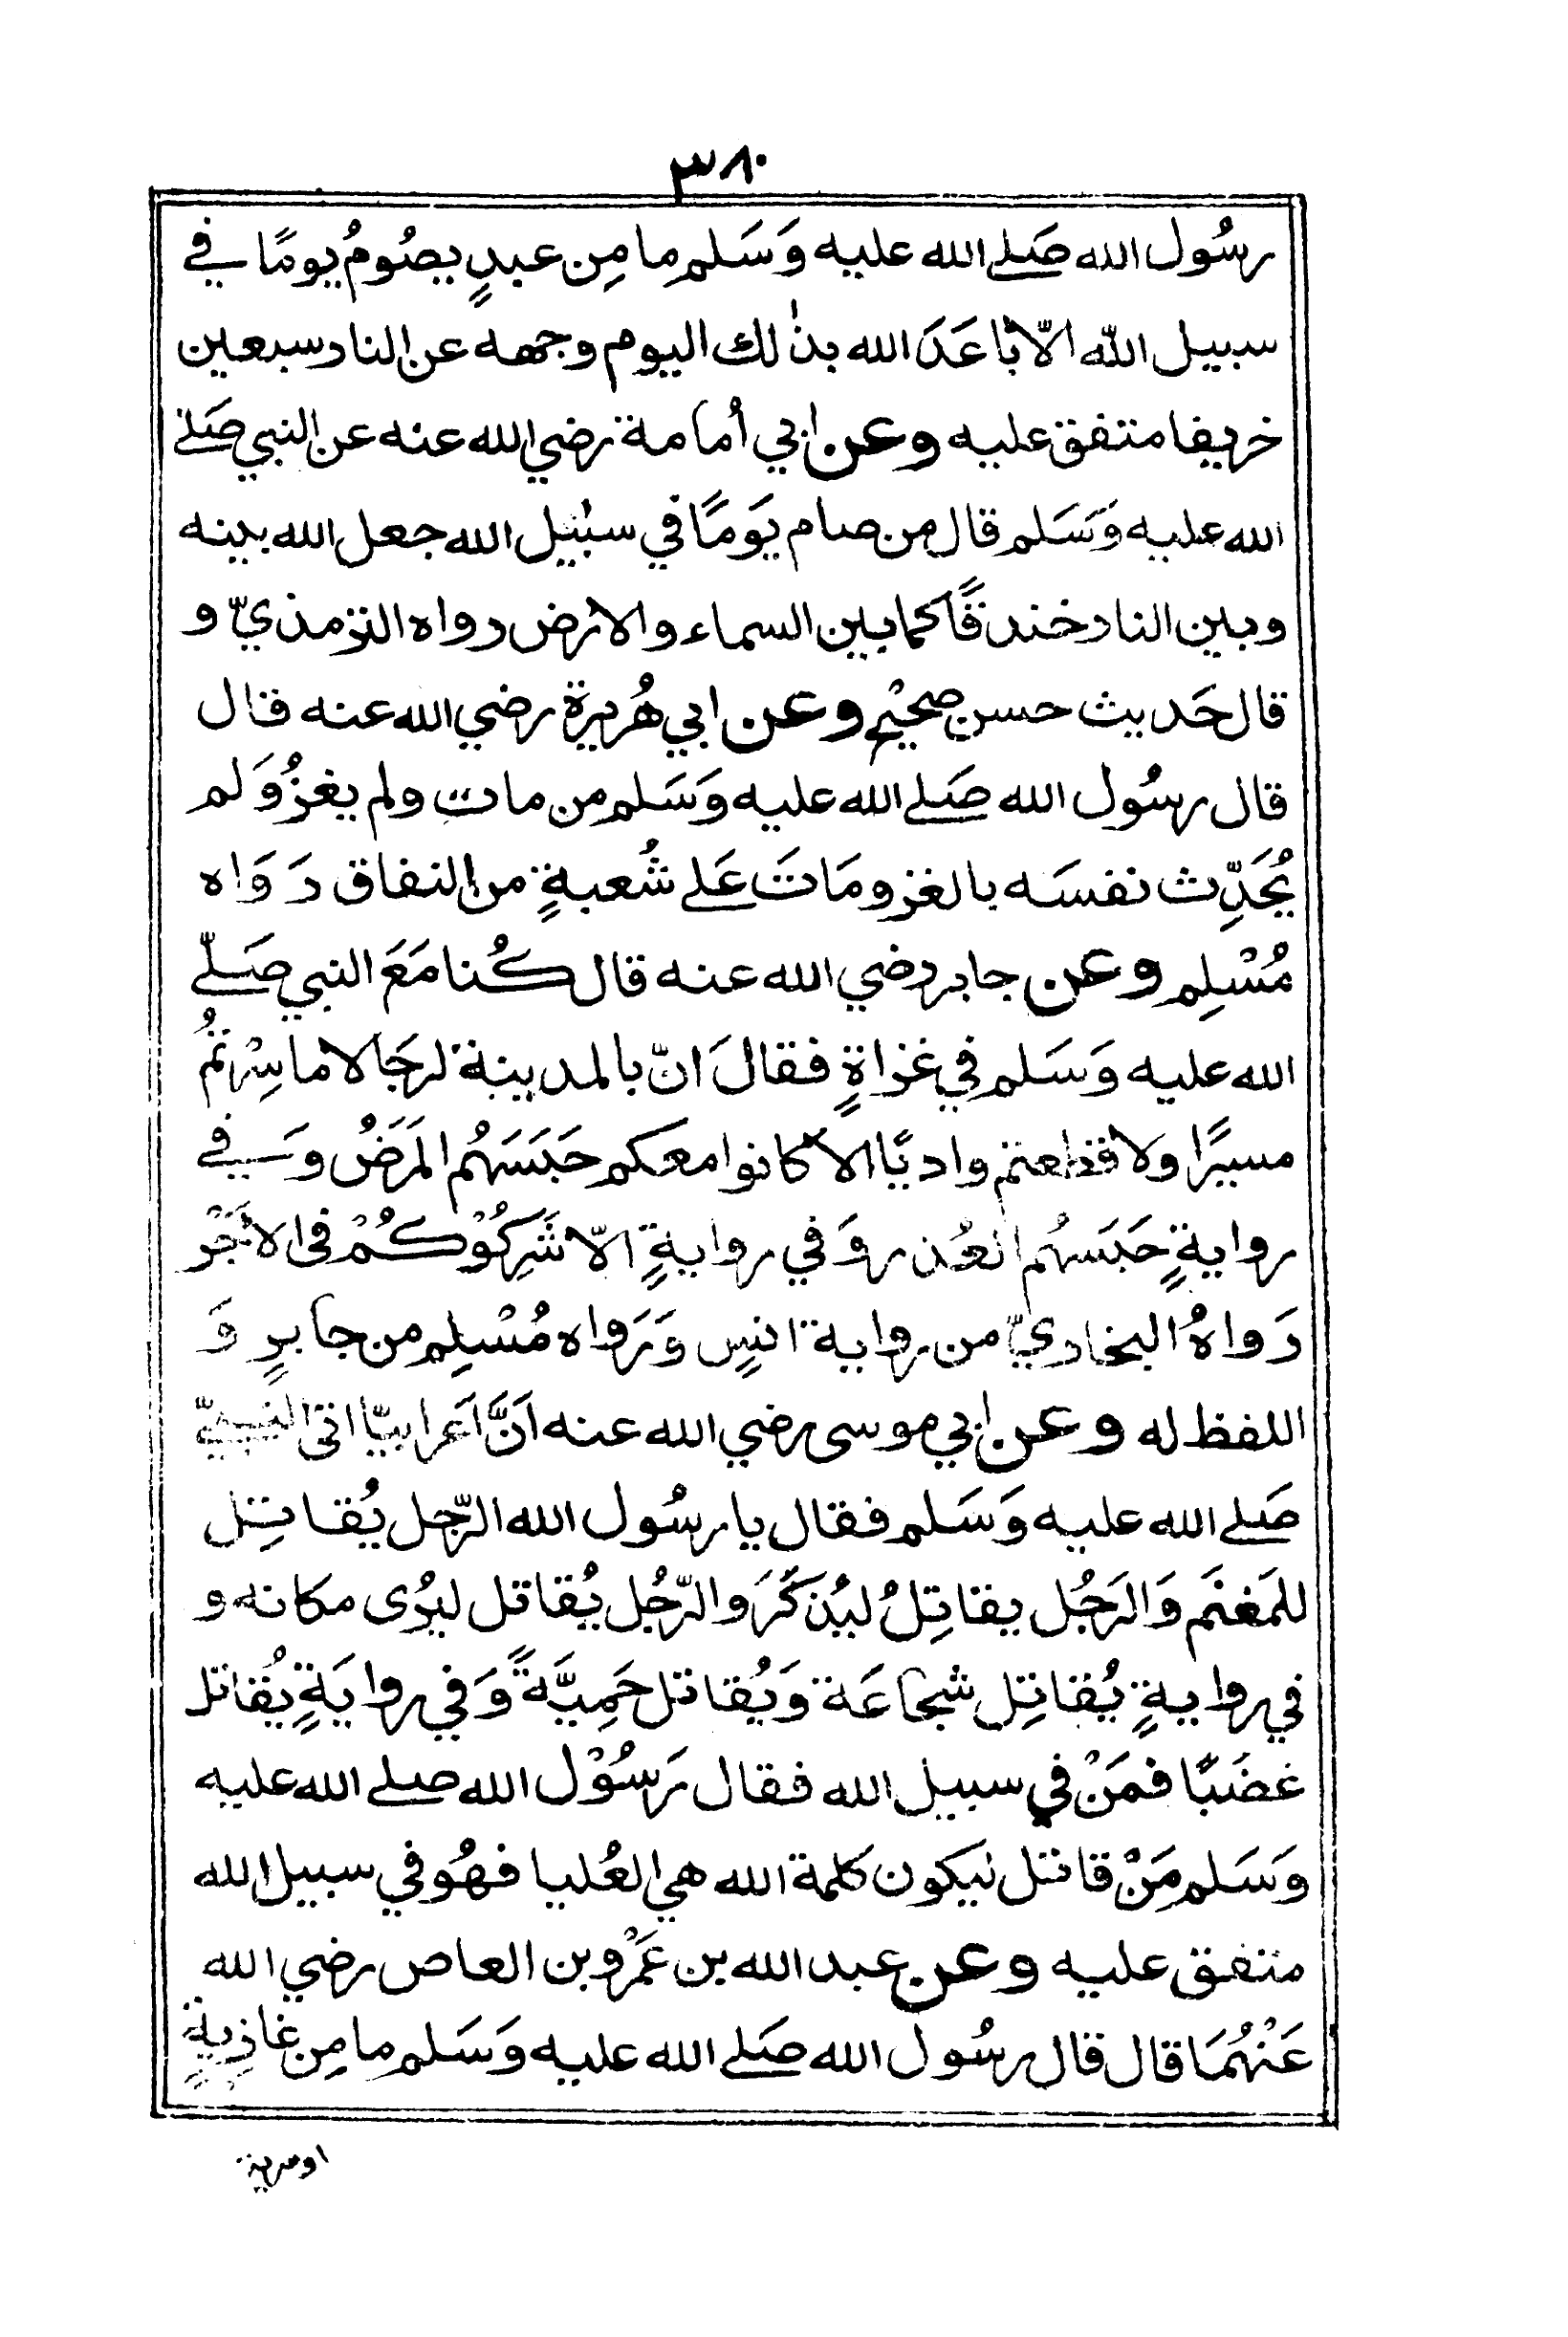 ٣٨٠
رسُول الله صَلے الله عليه وَسَلم ما مِن عبدٍ يصُومُ يومًا في
سبيل الله الّا باعَدَ الله بذٰلك اليوم وجهه عن النار سبعين
خريفا متفق عليه وعن ابي أمامة رضي الله عنه عن النبي صَلے
الله عليه وَسَلم قال من صام يَومًا في سبيل الله جعل الله بينه
وبين النار خندقًا كما بين السماء والارض رواه الترمذيّ و
قال حَديث حسن صحيْح وعن ابي هُريرة رضي الله عنه قال
قال رسُول الله صَلے الله عليه وَسَلم من مات ولم يغزُ وَلم
يُحَدِّث نفسَه بالغزو مَاتَ عَلے شُعبةٍ من النفاق رَوَاه
مُسْلِم وعن جابر رضي الله عنه قال كُنا مَعَ النبي صَلّے
الله عليه وَسَلم في غزاةٍ فقالَ انّ بالمدينة لرجَالا ما سِرْتمُ
مسيرًا ولا قطعتم واديًا الا كانوا معكم حَبَسَهُم المَرَضُ وَ في
روايةٍ حَبَسَهُم العُذر وَ في روايةٍ الّا شَرِكُوْكُمْ فى الاَجْر
رَواهُ البخاريّ من رواية انسٍ وَرَواه مُسْلِم من جابرٍ وَ
اللفظ له وعن ابي موسى رضي الله عنه اَنَّ اَعرابيّا اتى النبيّ
صَلے الله عليه وَسَلم فقال يا رسُول الله الرّجل يُقاتِل
للمَغنَم وَالرَجُل يقاتِلُ ليُذكَرَ والرّجُل يُقاتل ليُرٰى مكانه و
في روايةٍ يُقاتِل شجاعَة وَيُقاتل حَمِيَّةً وَفي روايَةٍ يُقاتل
غضَبًا فمَنْ في سبيل الله فقال رَسُوْل الله صلے الله عليه
وَسَلم مَنْ قاتل ليكون كلمة الله هي العُليا فهُو في سبيل الله
متفق عليه وعن عبد الله بن عَمْرو بن العاص رضي الله
عَنْهُمَا قال قال رسُول الله صَلے الله عليه وَسَلم ما مِن غازِيةٍ
او سرية